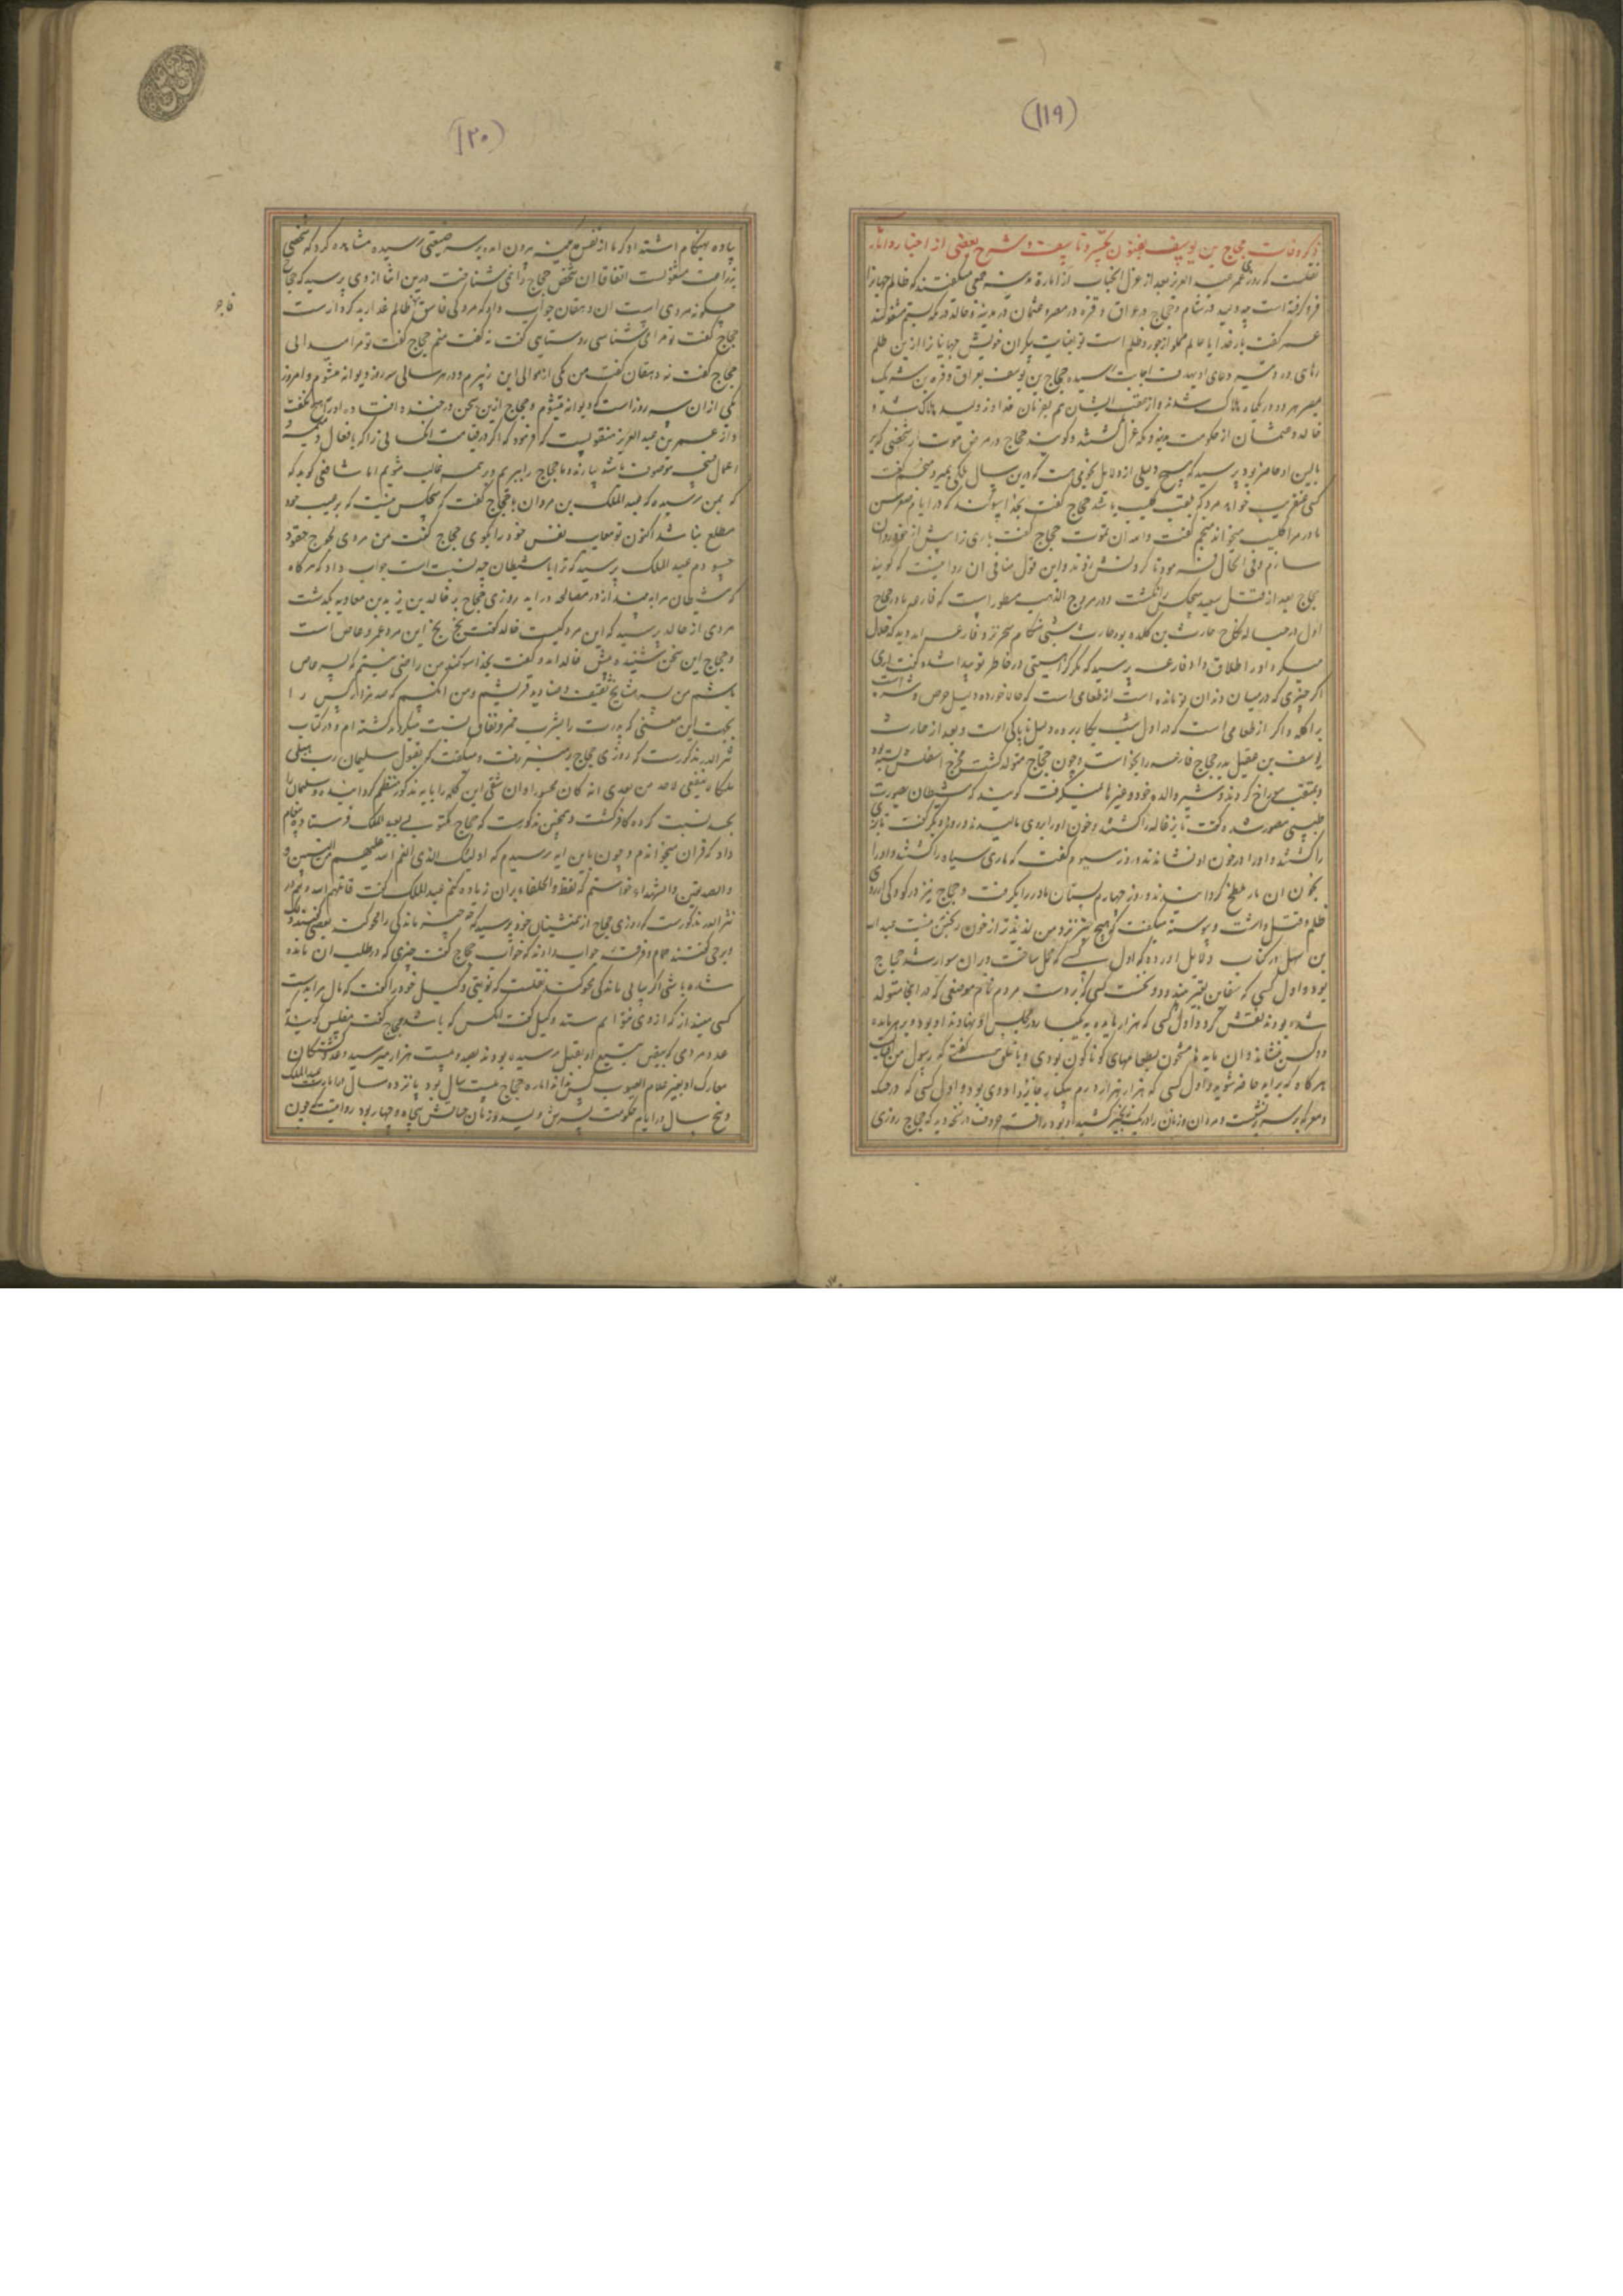 (۱۱۹)
ذکر وفات حجاج بن یوسف و شرح بعضی از اخبار و اثار
نقلست که روزی عمر عبد العزیز بعد از عزل از امارة مدینه میگفتند که ظالم جهانرا
فرو کرفته است چه ولید در شام و حجاج در عراق و قره در مصر و عثمان در مدینه و خالد در مکه بستم مشغولند
عمر کفت بار خدایا عالم مملو از جور و ظلم است تو بعنایت بیکران خویش جهانیانرا ازین ظلم
رهای ده و تیر دعای او بهدف اجابت رسیده حجاج بن یوسف بعراق و قره بن شریک
بمصر هر دو در یکماه هلاک شدند و از عقب ایشان هم بفرمان خداوند ولید هلاک شد و
خالد و عثمان از حکومت مدینه و مکه عزل کشتند و کویند حجاج در مرض موت از شخصی که بر
بالین او حاضر بود پرسید که هیچ دلیلی از دلایل نجومی هست که درین سال ملکی بمیرد منجم کفت
کسی عنقریب خواهد مرد که ملقب بکلیب باشد حجاج کفت بخدا سوکند که در ایام صغر سن
مادر مرا کلیب میخواند منجم کفت والله ان توت حجاج کفت باری ترا پیش از خود روان
سازم و فی الحال فرمود تا کردنش زدند و این قول منافی ان روایتست که کویند
حجاج بعد از قتل سعید هیچکس را نکشت و در مروج الذهب مسطور است که فارعه مادر حجاج
اول در حباله نکاح حارث بن کلده بود حارث شبی هنکام سحر نزد فارعه امد دید که خلال
میکرد او را طلاق داد فارعه پرسید که مکر کراهیتی در خاطر تو پیدا شده کفت اری
اکر چیزی که در میان دندان تو مانده است از طعامی است که حالا خورده دلیل حرص و شره است
بر اکل و اکر از طعامی است که در اول شب بکار برده دلیل ناپاکی است و بعد از حارث
یوسف بن عقیل پدر حجاج فارعه را بخواست و چون حجاج متولد کشت مخرج اسفلش بسته بود
سوراخ کردند و شیر والده خود و غیرها نمیکرفت کویند که شیطان بصورت
طبیبی مصور شده کفت تا بزغاله را کشتند و خون او را بر وی مالیدند و روز دیکر کفت تا بزی
را کشتند و او را در خون او نشاندند و روز سیوم کفت که ماری سیاه را کشتند و او را
بخون ان مار ملطخ کردانیدند و روز چهارم پستان مادر را بکرفت و حجاج نیز در کودکی ارزوی
ظلم و قتل داشت و پیوسته میکفت که هیچ چیز نزد من لذیذتر از خون ریختن نیست عبد الله
بن سهل در کتاب دلایل اورده که اول کسی که محمل ساخت و در ان سوار شد حجاج
بود و اول کسی که سفاین بقیر بیندود و نخست کسی که بر دست مردم نام موضعی که در انجا متولد
شده بودند نقش کرد و اول کسی که هزار مایده به یکبار در مجلس او بنهادند او بود و بر هر مایده
ده کس بنشاند و ان مایه ها مشحون بطعامهای کوناکون بودی و با خلق کفتی که رسول من افتاب
هر کاه که براید حاضر شوید و اول کسی که هزار هزار درم بیکبار جایزه داد وی بود و اول کسی که در جنک
و معرکه بر سریر نشست و مردان و زنان را در یک زنجیر کشید او بود راقم حروف در نتخا دیده که حجاج روزی
(۱۲۰)
پیاده بهنکام اشتداد کرما از بیرون امد بر سر ضیعتی رسیده مشاهده کرد که شخصی
بزراعت مشغولست اتفاقا ان شخص حجاج را نمی شناخت درین اثنا از وی پرسید که حجاج
چکونه مردی است ان دهقان جواب داد که مردکی فاسق ظالم غدار بد کردارست
حجاج کفت تو مرا می شناسی روستای کفت نه کفت منم حجاج کفت تو مرا میدانی
حجاج کفت نه دهقان کفت من یکی از موالی ابن زبیرم و در هر سالی سه روز دیوانه میشوم و امروز
یکی از ان سه روز است که دیوانه میشوم و حجاج ازین سخن در خنده افتاد و او را هیچ نکفت
و از عمر بن عبد العزیز منقولیست که فرمود که اکر در قیامت انکسانی را که بافعال ذمیمه و
اعمال قبیح موصوف باشند بیارند و ما حجاج را ببریم و بر همه غالب شویم امام شافعی کوید که
که بمن رسیده که عبد الملک بن مروان با حجاج کفت که هیچکس نیست که بر عیب خود
مطلع نباشد اکنون تو معایب نفس خود را بکوی حجاج کفت من مردی لجوج حقود
حسودم عبد الملک پرسید که ترا با شیطان چه نسبت است جواب داد که هرکاه
که شیطان مرا به بیند از در مصالحه در اید روزی حجاج بر خالد بن یزید بن معاویه بکذشت
مردی از خالد پرسید که این مرد کیست خالد کفت بخ بخ این مرد عمر و عاص است
و حجاج این سخن شنیده پیش خالد امد و کفت بخدا سوکند من راضی نیستم که پسر عاص
باشم من پسر مشایخ ثقیف و صنادید قریشم و من انکسم که صد هزار کس را
بجهت این معنی که پدرت را بشرب خمر و نفاق نسبت میکردند کشته ام و در کتاب
نثر الدر مذکورست که روزی حجاج بر منبر رفت و میکفت که بقول سلیمان رب هبلی
ملکا لا ینبغی لاحد من بعدی انه کان لحسودا و ان شقی این کلمه را بایه مذکور منظم کردانیده و سلیمان را
بحسد نسبت کرده کافر کشت و همچنین مذکورست که حجاج مکتوبی بعبد الملک فرستاد پیغام
داد که قران میخواندم و چون باین ایه رسیدم که اولیک الذی انعم الله علیهم من النبیین و
والصدیقین والشهداء خواستم که لفظ والخلفاء بران زیاده کنم عبد الملک کفت قاتلهم الله و هم در
نثر الدر مذکورست که روزی حجاج از همنشینان خود پرسید که چه چیز ماندکی را محو کند بعضی کفتند
و برخی کفتند حمام و فرقه جواب دادند که خواب حجاج کفت چیزی که در طلب ان مانده
شده باشی اکر بیابی ماندکی محو کند نقلست که نوبتی وکیل خود را کفت که مال مرا بدست
کسی مینداز که از وی نتوانم ستد وکیل کفت انکس که باشد حجاج کفت مفلس کویند
عدد مردی که بتیغ او بقتل رسیده بودند بصد و بیست هزار میرسید و عدد کشتکان
معارک او بجز علام الغیوب کس نداند امارة حجاج بیست سال بود پانزده سال عبد الملک
و پنج سال در ایام حکومت پسرش ولید و زمان حیاتش پنجاه و چهار بود روایتست که چون